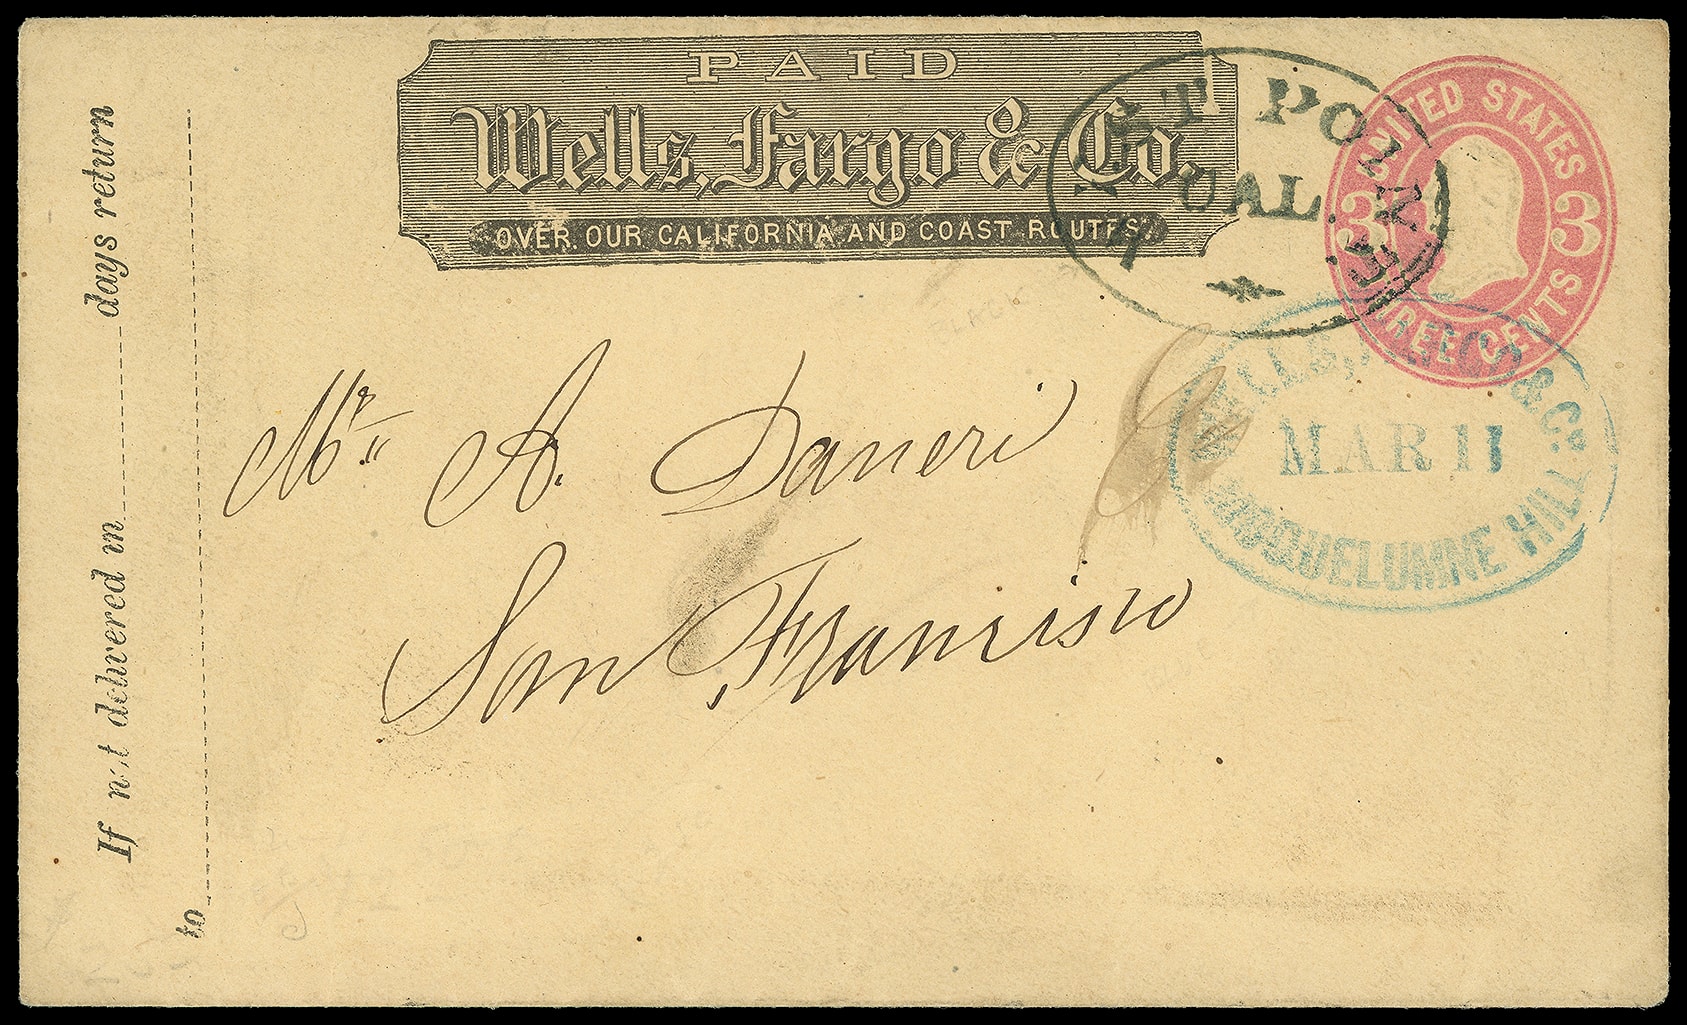 PAID
Wells, Fargo & Co.
OVER OUR CALIFORNIA AND COAST ROUTES.
WEST POINT
CAL.
UNITED STATES
3 3
THREE CENTS
WELLS, FARGO & Co.
MAR 11
MOQUELUMNE HILL
Mr. A. Daneri
San Francisco
If not delivered in days return
to